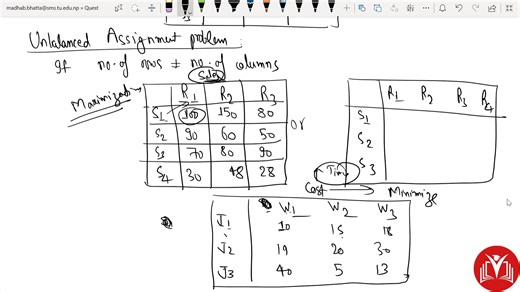 madhab.bhatta@sms.tu.edu.np » Quest
Unbalanced Assignment problem
If no. of rows ≠ no. of columns
Sales
Maximization
R1 R2 R3
S1 100 150 80
S2 90 60 50
S3 70 80 90
S4 30 48 28
or
R1 R2 R3 R4
S1
S2
S3
Time
Cost → Minimize
W1 W2 W3
J1 10 15 18
J2 19 20 30
J3 40 5 13